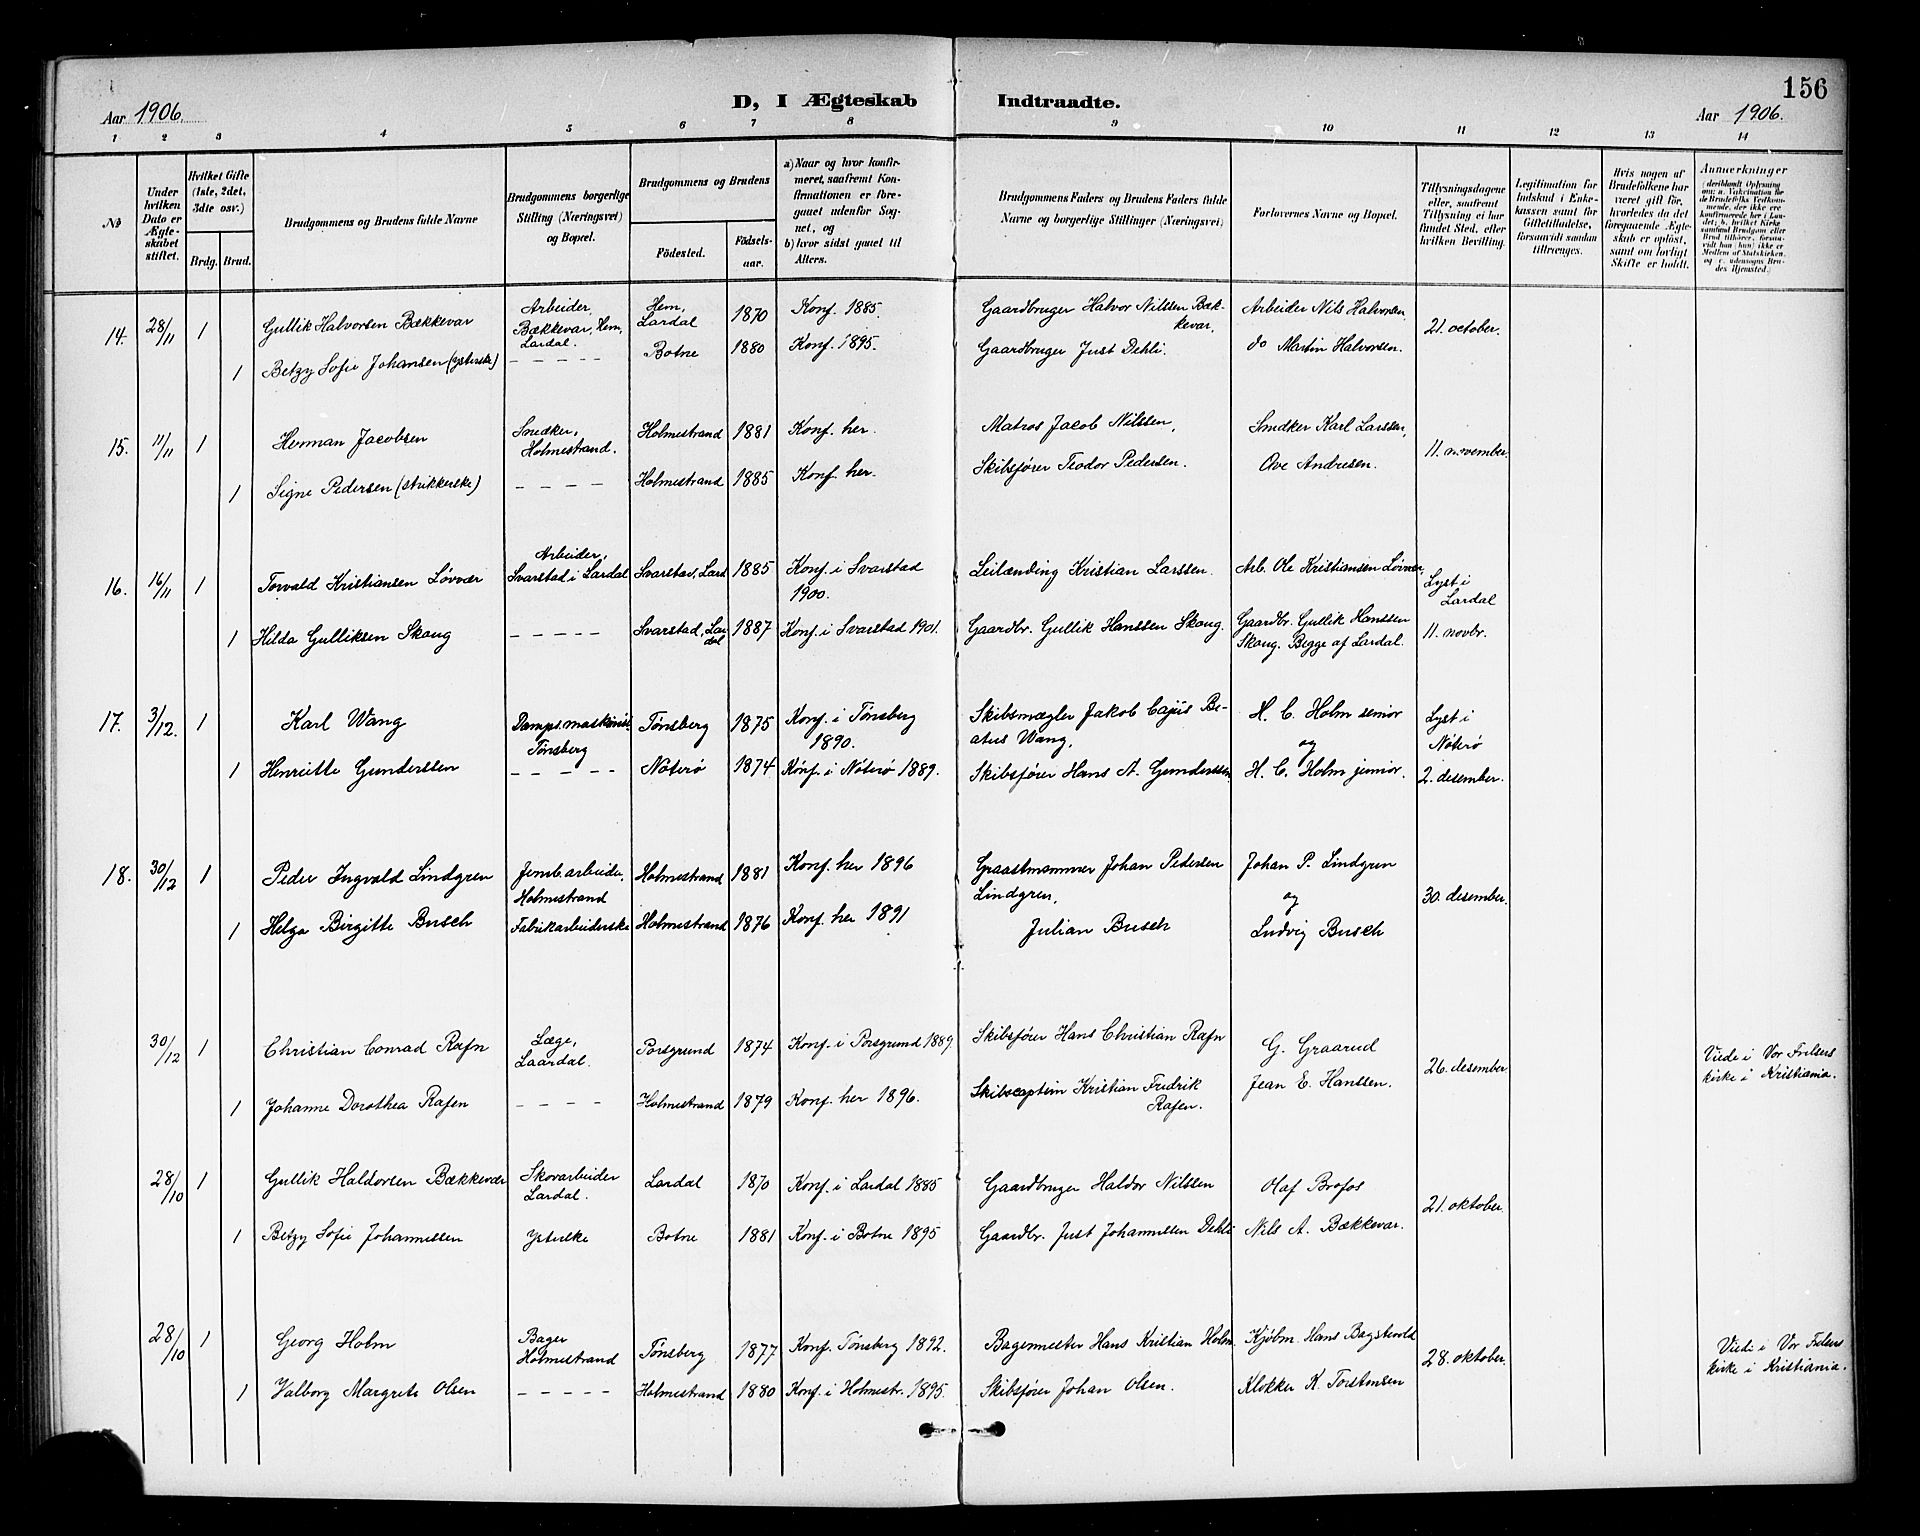 156
D, I Ægteskab Indtraadte.
Aar 1906.
Aar 1906.
1 2 3 4 5 6 7 8 9 10 11 12 13 14
№
Under hvilken Dato er Ægteskabet stiftet.
Hvilket Gifte (1ste, 2det, 3die osv.)
Brdg. Brud.
Brudgommens og Brudens fulde Navne
Brudgommens borgerlige Stilling (Næringsvei) og Bopæl.
Brudgommens og Brudens
Fødested.
Fødselsaar.
a) Naar og hvor konfirmeret, saafremt Konfirmationen er foregaaet udenfor Sognet, og
b) hvor sidst gaaet til Alters.
Brudgommens Faders og Brudens Faders fulde Navne og borgerlige Stillinger (Næringsvei)
Forlovernes Navne og Bopæl.
Tillysningsdagene eller, saafremt Tillysning ei har fundet Sted, efter hvilken Bevilling.
Legitimation for Indskud i Enkekassen samt for Giftetilladelse, forsaavidt saadan tiltrænges.
Hvis nogen af Brudefolkene har været gift før, hvorledes da det foregaaende Ægteskab er opløst, samt om lovligt Skifte er holdt.
Anmærkninger
(deriblandt Oplysning om: a. Vakcination for de Brudefolks Vedkommende, der ikke ere konfirmerede her i Landet; b. hvilket Kirkesamfund Brudgom eller Brud tilhører, forsaavidt han (hun) ikke er Medlem af Statskirken, og c. udensogns Brudes Hjemsted.)
14. 28/11 1 Gullik Halvorsen Bækkevar Arbeider, Bækkevar, Hem, Lardal. Hem, Lardal 1870 Konf. 1885. Gaardbruger Halvor Nilssen Bækkevar, Arbeider Nils Halvorsen, 21. october.
1 Betzy Sofie Johansen (ysterske) – – – – Botne 1880 Konf. 1895. Gaardbruger Just Dehli. do Martin Halvorsen.
15. 11/11 1 Herman Jacobsen Snedker, Holmestrand. Holmestrand 1881 Konf. her. Matros Jacob Nilssen, Snedker Karl Larssen, 11. november.
1 Signe Pedersen (strikkerske) – – – – Holmestrand 1885 Konf. her. Skibsfører Teodor Pedersen. Ove Andresen.
16. 16/11 1 Torvald Kristiansen Løvvær Arbeider, Svarstad i Lardal Svarstad, Lard 1885 Konf. i Svarstad 1900. Leilænding Kristian Larssen. Arb. Ole Kristiansen Løvvær, Lyst i Lardal
1 Hilda Gulliksen Skaug – – – – – Svarstad, Lardal 1887 Konf. i Svarstad 1901. Gaardbr. Gullik Hanssen Skaug. Gaardbr. Gullik Hanssen Skaug. Begge af Lardal. 11. novbr.
17. 3/12. 1 Karl Wang Damps.maskinist Tønsberg Tønsberg 1875 Konf. i Tønsberg 1890. Skibsmægler Jakob Cajus Beatus Wang, H. C. Holm senior og Lyst i Nøterø
1 Henriette Gunderssen – – – – – Nøterø 1874 Konf. i Nøterø 1889. Skibsfører Hans A. Gunderssen H. C. Holm junior. 2. desember.
18. 30/12 1 Peder Ingvald Lindgren Jernb.arbeider, Holmestrand Holmestrand 1881 Konf. her 1896 Johan Pedersen Lindgren, Johan P. Lindgren og 30. desember.
1 Helga Birgitte Busch Fabrikarbeiderske Holmestrand 1876 Konf. her 1891 Julian Busch Ludvig Busch
30/12 1 Christian Conrad Rafn Læge, Laardal. Porsgrund 1874 Konf. i Porsgrund 1889 Skibsfører Hans Christian Rafn G. Graarud 26. desember Viede i Vor Frelsers kirke i Kristiania.
1 Johanne Dorothea Rafen – – – – Holmestrand 1879 Konf. her 1896. Skibscaptein Kristian Fredrik Rafen. Jean E. Hanssen.
28/10 1 Gullik Haldorsen Bækkevær Skovarbeider Lardal. Lardal 1870 Konf. i Lardal 1885 Gaardbruger Haldor Nilssen Olaf Brofos 21. oktober.
1 Betzy Sofie Johannessen Ysterske Botne 1881 Konf. i Botne 1895 Gaardbr. Just Johannessen Dehli Nils A. Bækkevar.
28/10 1 Georg Holm Bager Holmestrand Tønsberg 1877 Konf. Tønsberg 1892. Bagermester Hans Kristian Holm Kjøbm. Hans Bagstevold 28. oktober. Viede i Vor Frelsers kirke i Kristiania.
1 Valborg Margrete Olsen – – – – – Holmestrand 1880 Konf. i Holmestr. 1895. Skibsfører Johan Olsen. Klokker K. Torstensen